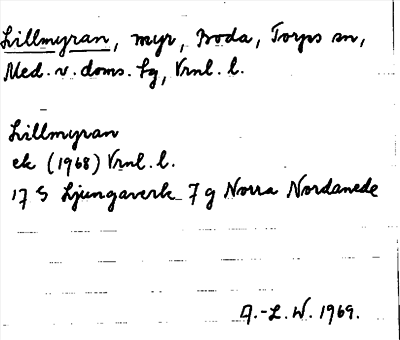 Lillmyran, myr, Boda, Torps sn,
Med. v. doms. hg, Vrnl. l.
Lillmyran
ek (1968) Vrnl. l.
17 G Ljungaverk 7 g Norra Nordanede
A.-L.W. 1969.